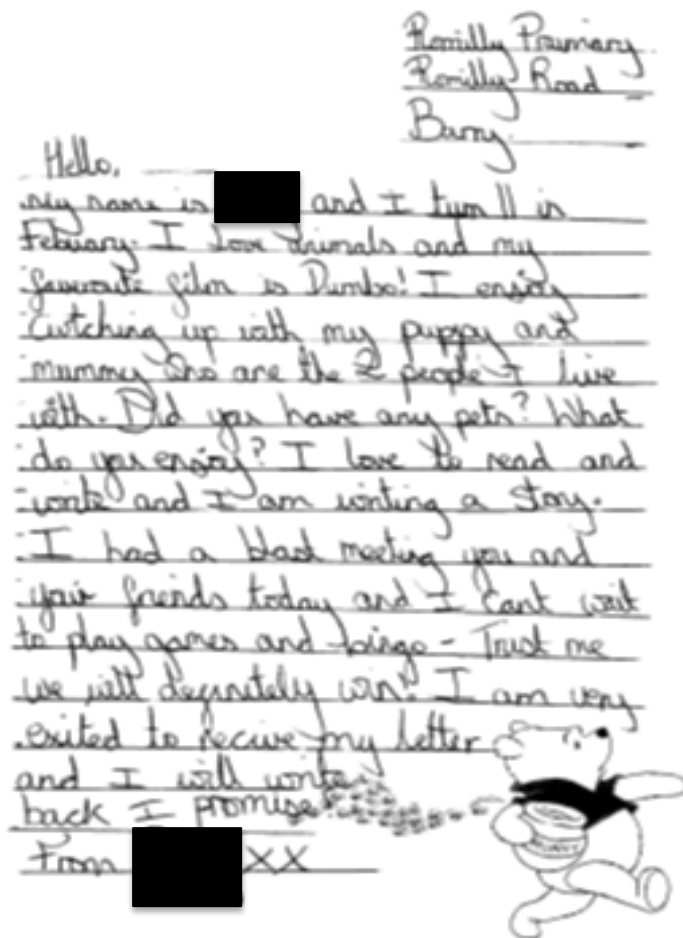 Romilly Primary
Romilly Road
Barry
Hello,
my name is and I turn 11 in
Febuary. I love animals and my
favourite film is Dumbo! I enjoy
Cwtching up with my puppy and
mummy who are the 2 people I live
with. Did you have any pets? What
do you enjoy? I love to read and
write and I am writing a story.
I had a blast meeting you and
your friends today and I cant wait
to play games and bingo - Trust me
we will definitely win! I am very
exited to recive my letter
and I will write
back I promise!
From XX